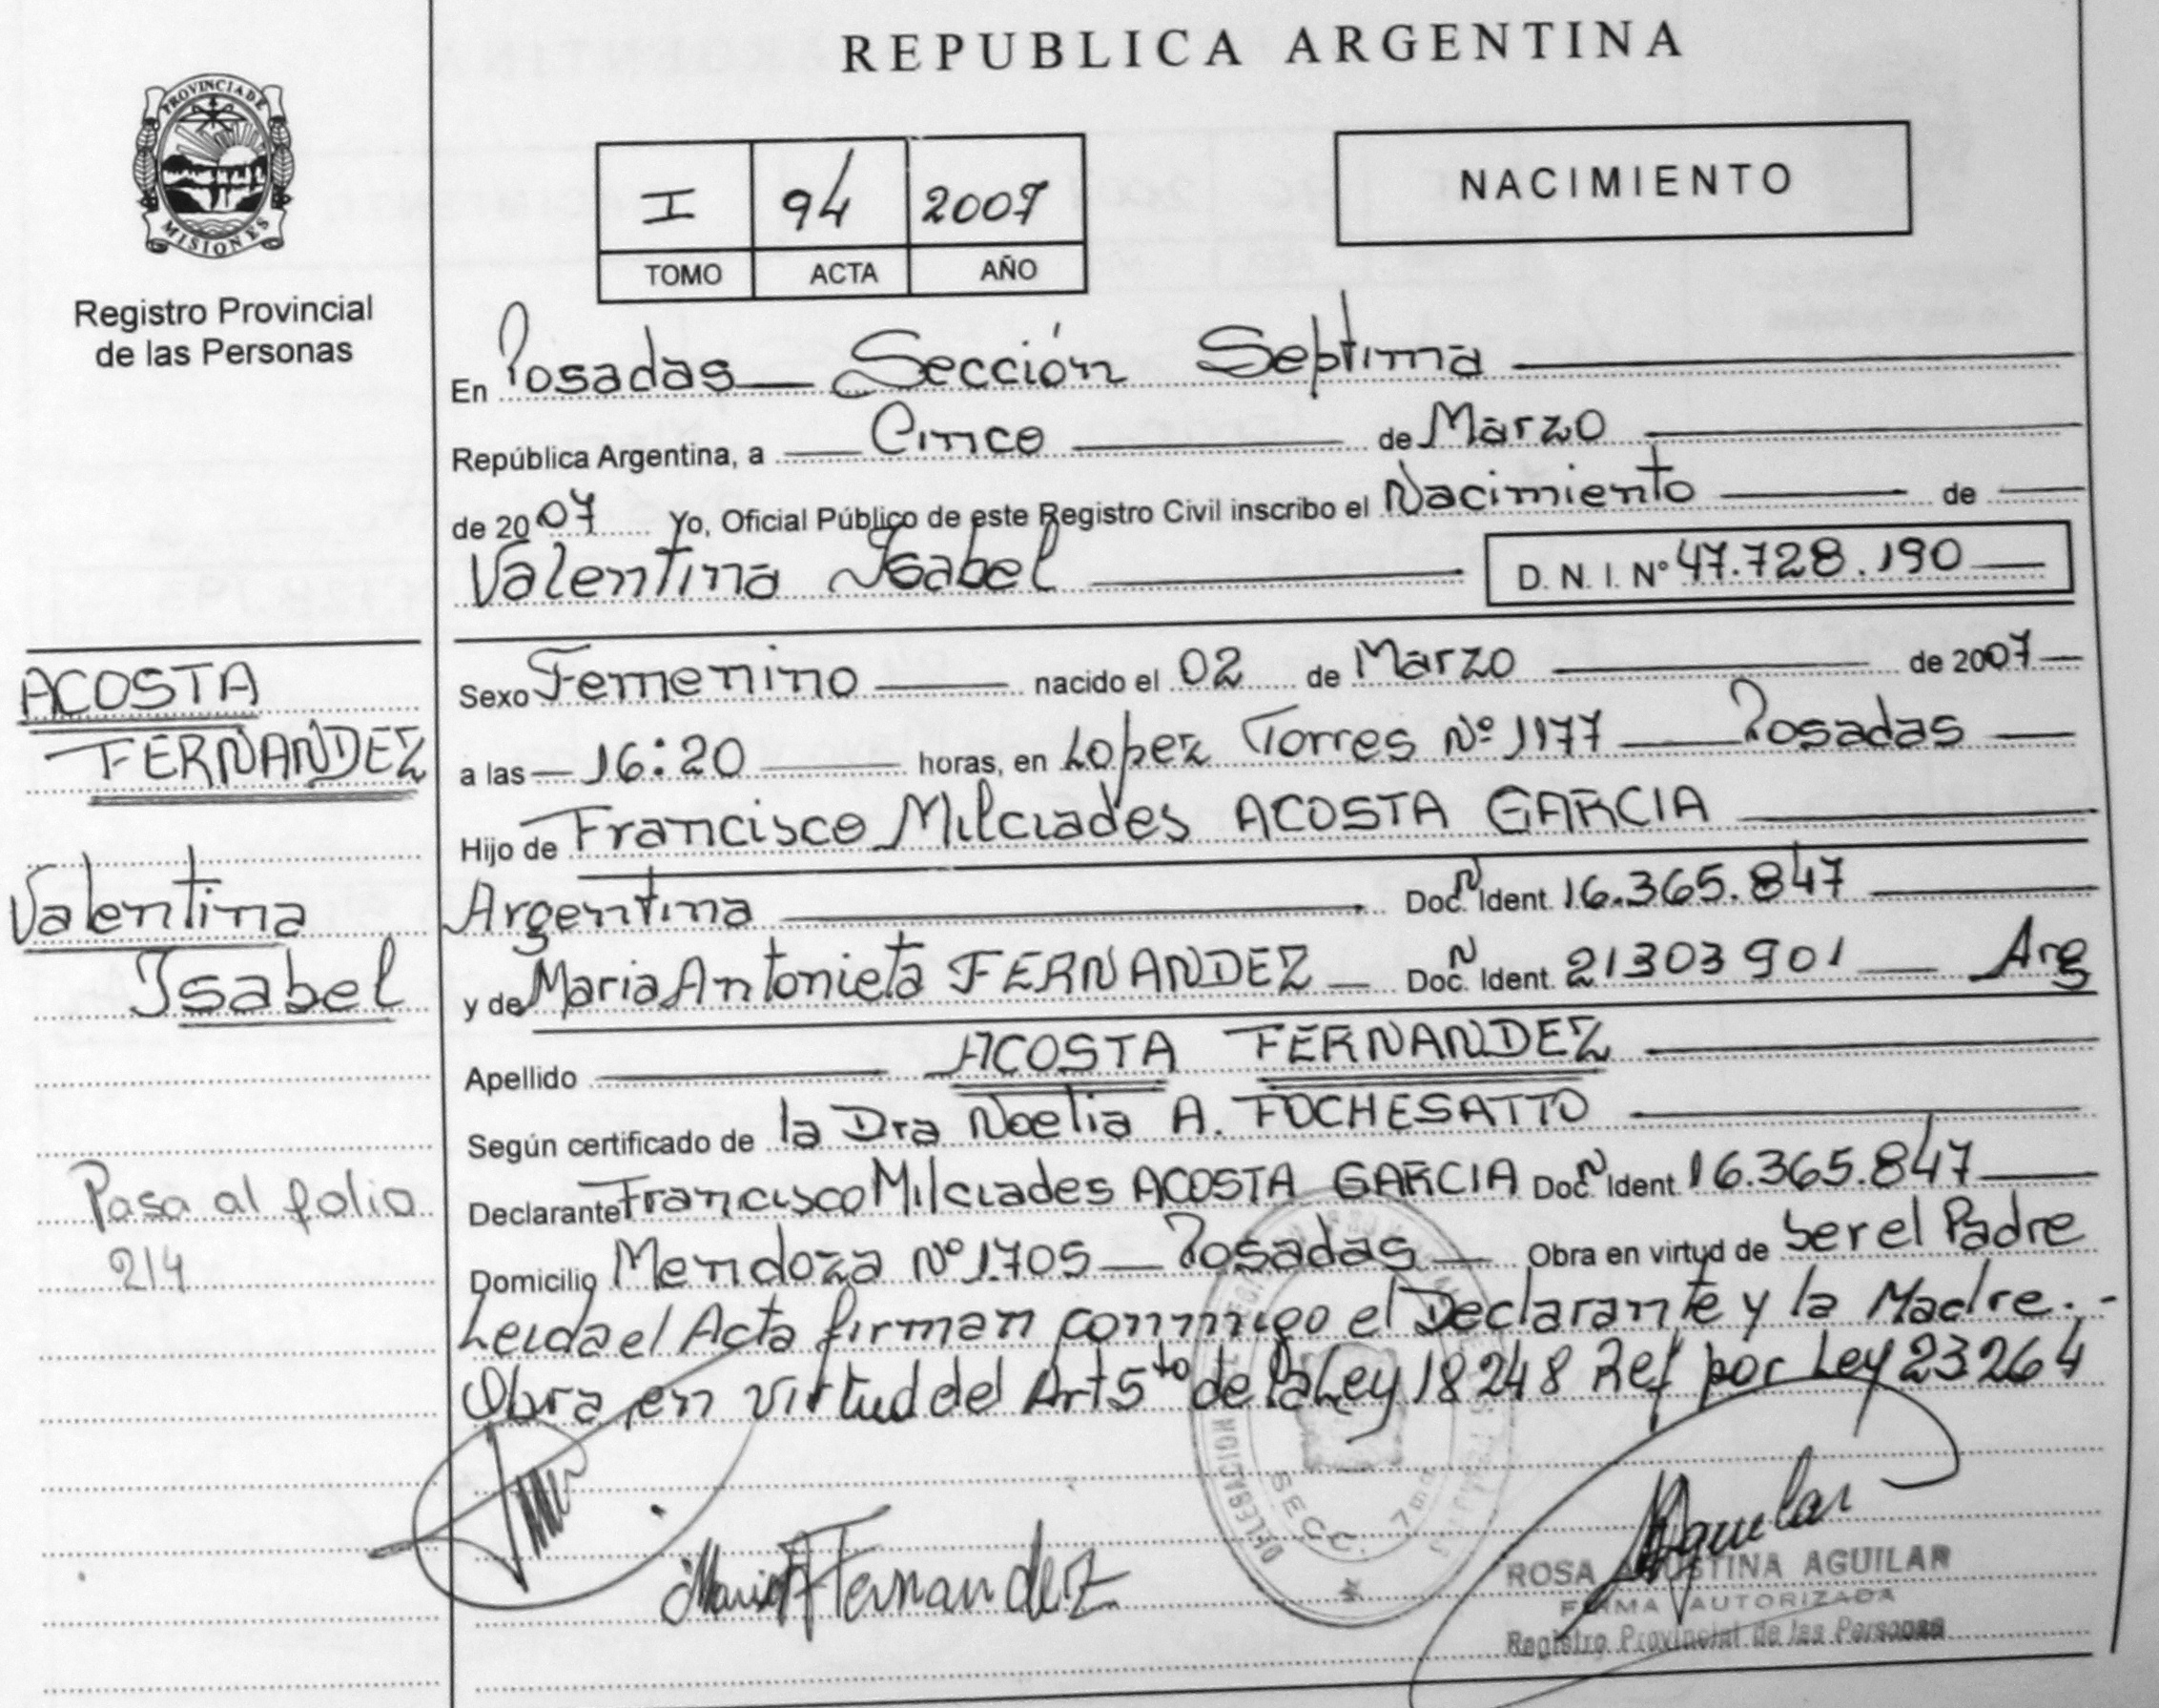 REPUBLICA ARGENTINA
PROVINCIA DE
MISIONES
Registro Provincial
de las Personas
I 94 2007
TOMO ACTA AÑO
NACIMIENTO
En Posadas — Sección Septima
República Argentina, a Cinco de Marzo
de 2007 Yo, Oficial Público de este Registro Civil inscribo el Nacimiento de
Valentina Isabel D. N. I. Nº 47.728.190
ACOSTA
FERNANDEZ
Valentina
Isabel
Pasa al folio
214
Sexo Femenino nacido el 02 de Marzo de 2007
a las 16:20 horas, en Lopez Torres Nº 1177 — Posadas
Hijo de Francisco Milciades ACOSTA GARCIA
Argentina Doc. Ident. 16.365.847
y de Maria Antonieta FERNANDEZ — Doc. Ident. 21303901 — Arg
Apellido ACOSTA FERNANDEZ
Según certificado de la Dra Noelia A. FOCHESATTO
Declarante Francisco Milciades ACOSTA GARCIA Doc. Ident 16.365.847
Domicilio Mendoza Nº 1.705 — Posadas — Obra en virtud de ser el Padre
Leida el Acta firman conmigo el Declarante y la Madre.-
Obra en virtud del Art 5to de la Ley 18248 Ref por Ley 23264
Maria A Fernandez
SECC. 7ma
Aguilar
ROSA AGUSTINA AGUILAR
FIRMA AUTORIZADA
Registro Provincial de las Personas